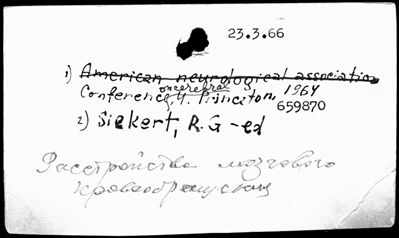 23.3.66
1) American neurological association
oncerebral
Conference, 4. Princeton, 1964
659870
2) Siekert, R.G -ed
Расстройства мозгового
кровообращения